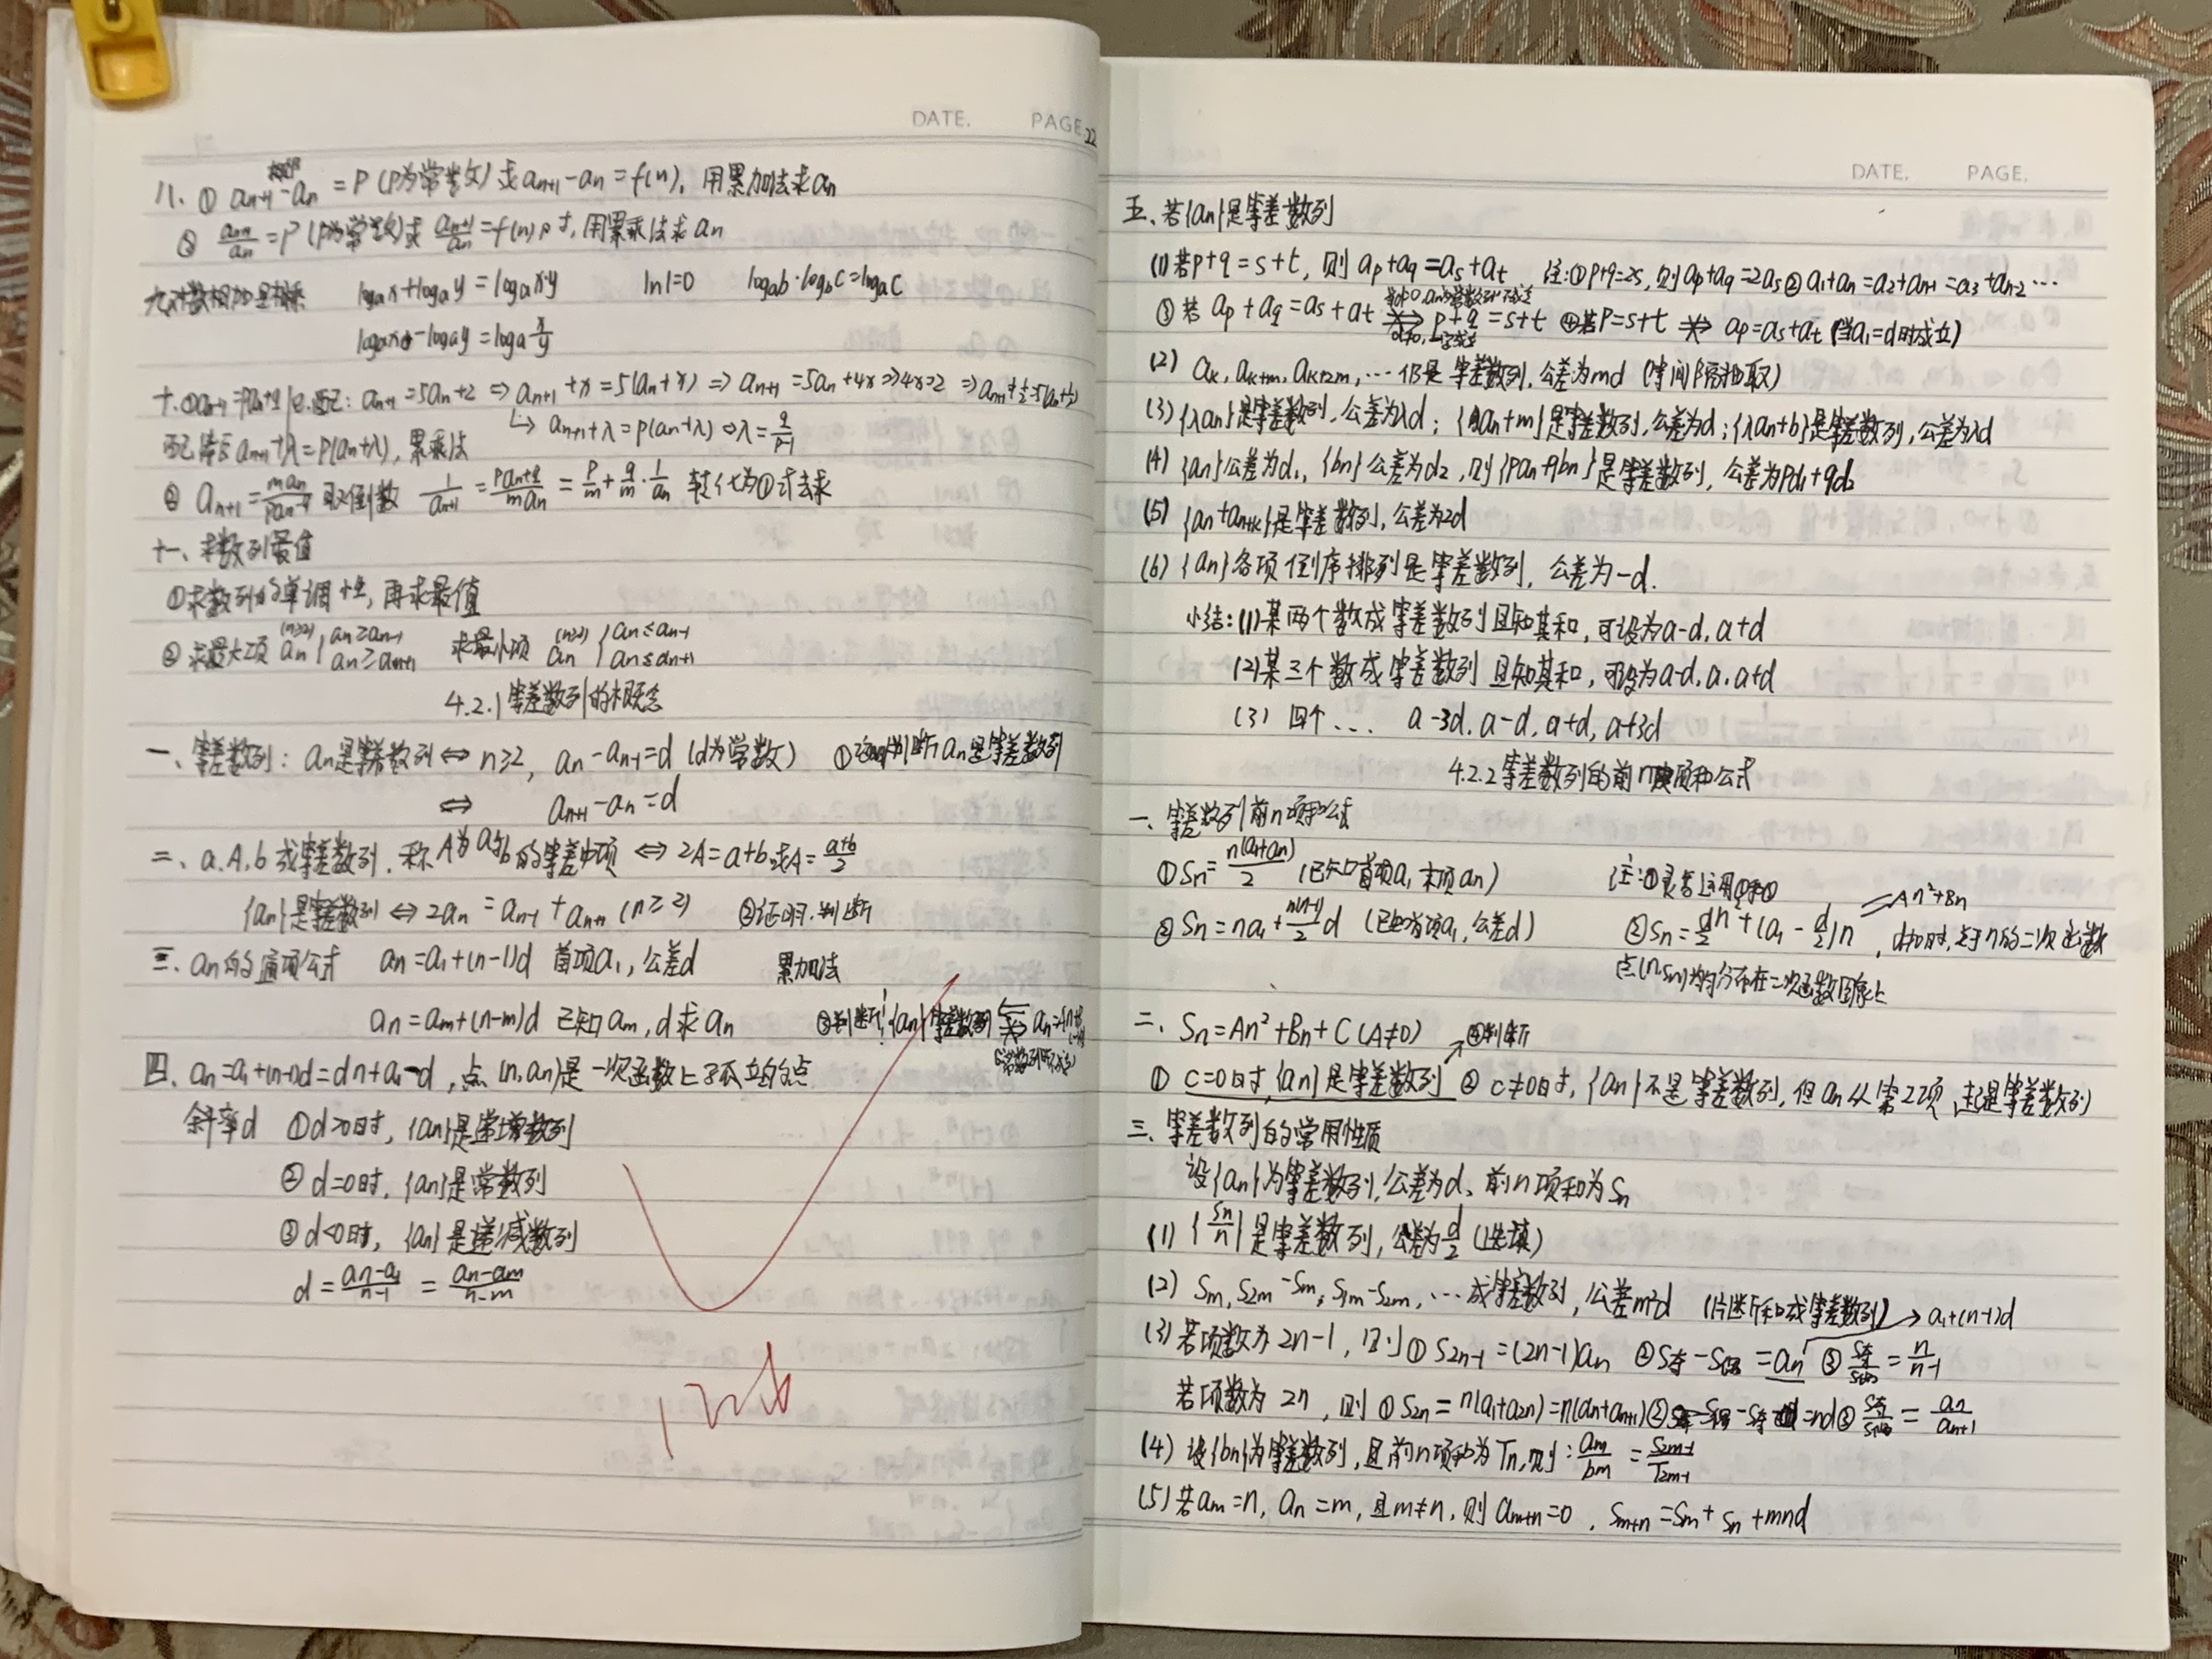 DATE. PAGE. 22
八. ① aₙ₊₁-aₙ = P (P为常数) 或 aₙ₊₁-aₙ = f(n), 用累加法求aₙ
② aₙ₊₁/aₙ = P (P为常数) 或 aₙ₊₁/aₙ = f(n)时, 用累乘法求aₙ
九.对数相加 logₐx+logₐy = logₐx·y ln1=0 logₐb·log_b c=logₐC
logₐx-logₐy = logₐ x/y
十.①aₙ₊₁=Paₙ+q aₙ₊₁=5aₙ+2 ⇒ aₙ₊₁+x=5(aₙ+x) ⇒ aₙ₊₁=5aₙ+4x ⇒4x=2 ⇒aₙ₊₁+½=5(aₙ+½)
↳ aₙ₊₁+λ=P(aₙ+λ) ⇔λ=q/(P-1)
aₙ₊₁+λ=P(aₙ+λ), 累乘法
② aₙ₊₁ = maₙ/(Paₙ+q) 取倒数 1/aₙ₊₁ = (Paₙ+q)/(maₙ) = P/m + q/m · 1/aₙ 转化为①式去求
十一、求数列最值
①求数列的单调性, 再求最值
② 求最大项 aₙ (n≥2) { aₙ≥aₙ₋₁ aₙ≥aₙ₊₁ 求最小项 aₙ (n≥2) { aₙ≤aₙ₋₁ aₙ≤aₙ₊₁
4.2.1 等差数列的概念
一、等差数列: aₙ是等差数列 ⇔ n≥2, aₙ-aₙ₋₁=d (d为常数) ① 判断aₙ是等差数列
⇔ aₙ₊₁-aₙ=d
二、a.A.b 成等差数列. 称A为a与b的等差中项 ⇔ 2A=a+b或A=(a+b)/2
{aₙ}是等差数列 ⇔ 2aₙ = aₙ₋₁ + aₙ₊₁ (n≥2) ②证明.判断
三. aₙ的通项公式 aₙ=a₁+(n-1)d 首项a₁, 公差d 累加法
aₙ=aₘ+(n-m)d 已知aₘ,d求aₙ ③判断:{aₙ}等差数列
四. aₙ=a₁+(n-1)d=dn+a₁-d, 点(n,aₙ)是一次函数上孤立的点
斜率d ①d>0时, {aₙ}是递增数列
② d=0时, {aₙ}是常数列
③ d<0时, {aₙ}是递减数列
d = (aₙ-a₁)/(n-1) = (aₙ-aₘ)/(n-m)
DATE. PAGE.
五、若{aₙ}是等差数列
(1) 若p+q=s+t, 则 aₚ+a_q=aₛ+aₜ 注:①p+q=2s, 则aₚ+a_q=2aₛ ② a₁+aₙ=a₂+aₙ₋₁=a₃+aₙ₋₂…
③ 若 aₚ+a_q=aₛ+aₜ ⇏ p+q=s+t ④若P=s+t ⇏ aₚ=aₛ+aₜ (当a₁=d时成立)
(2) aₖ, aₖ₊ₘ, aₖ₊₂ₘ, … 仍是等差数列, 公差为md (等间隔抽取)
(3) {λaₙ}是等差数列, 公差为λd; {aₙ+m}是等差数列, 公差为d; {λaₙ+b}是等差数列, 公差为λd
(4) {aₙ}公差为d₁, {bₙ}公差为d₂, 则{Paₙ+qbₙ}是等差数列, 公差为Pd₁+qd₂
(5) {aₙ+aₙ₊ₖ}是等差数列, 公差为2d
(6) {aₙ}各项倒序排列是等差数列, 公差为-d.
小结: (1)某两个数成等差数列且知其和, 可设为a-d, a+d
(2)某三个数成等差数列且知其和, 可设为a-d, a, a+d
(3) 四个… a-3d, a-d, a+d, a+3d
4.2.2 等差数列的前n项和公式
一、等差数列前n项和公式
① Sₙ= n(a₁+aₙ)/2 (已知首项a₁ 末项aₙ) 注:①灵活运用①和②
② Sₙ=na₁+ n(n-1)/2 d (已知首项a₁, 公差d) ②Sₙ= d/2 n² + (a₁ - d/2)n = An²+Bn, d≠0时, 关于n的二次函数
点(n,Sₙ)均分布在二次函数图像上
二、Sₙ=An²+Bn+C (A≠0) ④判断
① C=0时, {aₙ}是等差数列 ② C≠0时, {aₙ}不是等差数列, 但aₙ从第2项起是等差数列
三、等差数列的常用性质
设{aₙ}为等差数列, 公差为d、前n项和为Sₙ
(1) {Sₙ/n}是等差数列, 公差为d/2 (选填)
(2) Sₘ, S₂ₘ-Sₘ, S₃ₘ-S₂ₘ, … 成等差数列, 公差m²d (片断和成等差数列) → a₁+(n-1)d
(3) 若项数为 2n-1, 则① S₂ₙ₋₁=(2n-1)aₙ ②S奇-S偶=aₙ ③ S奇/S偶 = n/(n-1)
若项数为 2n, 则 ① S₂ₙ=n(a₁+a₂ₙ)=n(aₙ+aₙ₊₁) ② S偶-S奇=nd ③ S奇/S偶 = aₙ/aₙ₊₁
(4) 设{bₙ}为等差数列, 且前n项和为Tₙ, 则: aₘ/bₘ = S₂ₘ₋₁/T₂ₘ₋₁
(5) 若aₘ=n, aₙ=m, 且m≠n, 则 aₘ₊ₙ=0, Sₘ₊ₙ=Sₘ+Sₙ+mnd